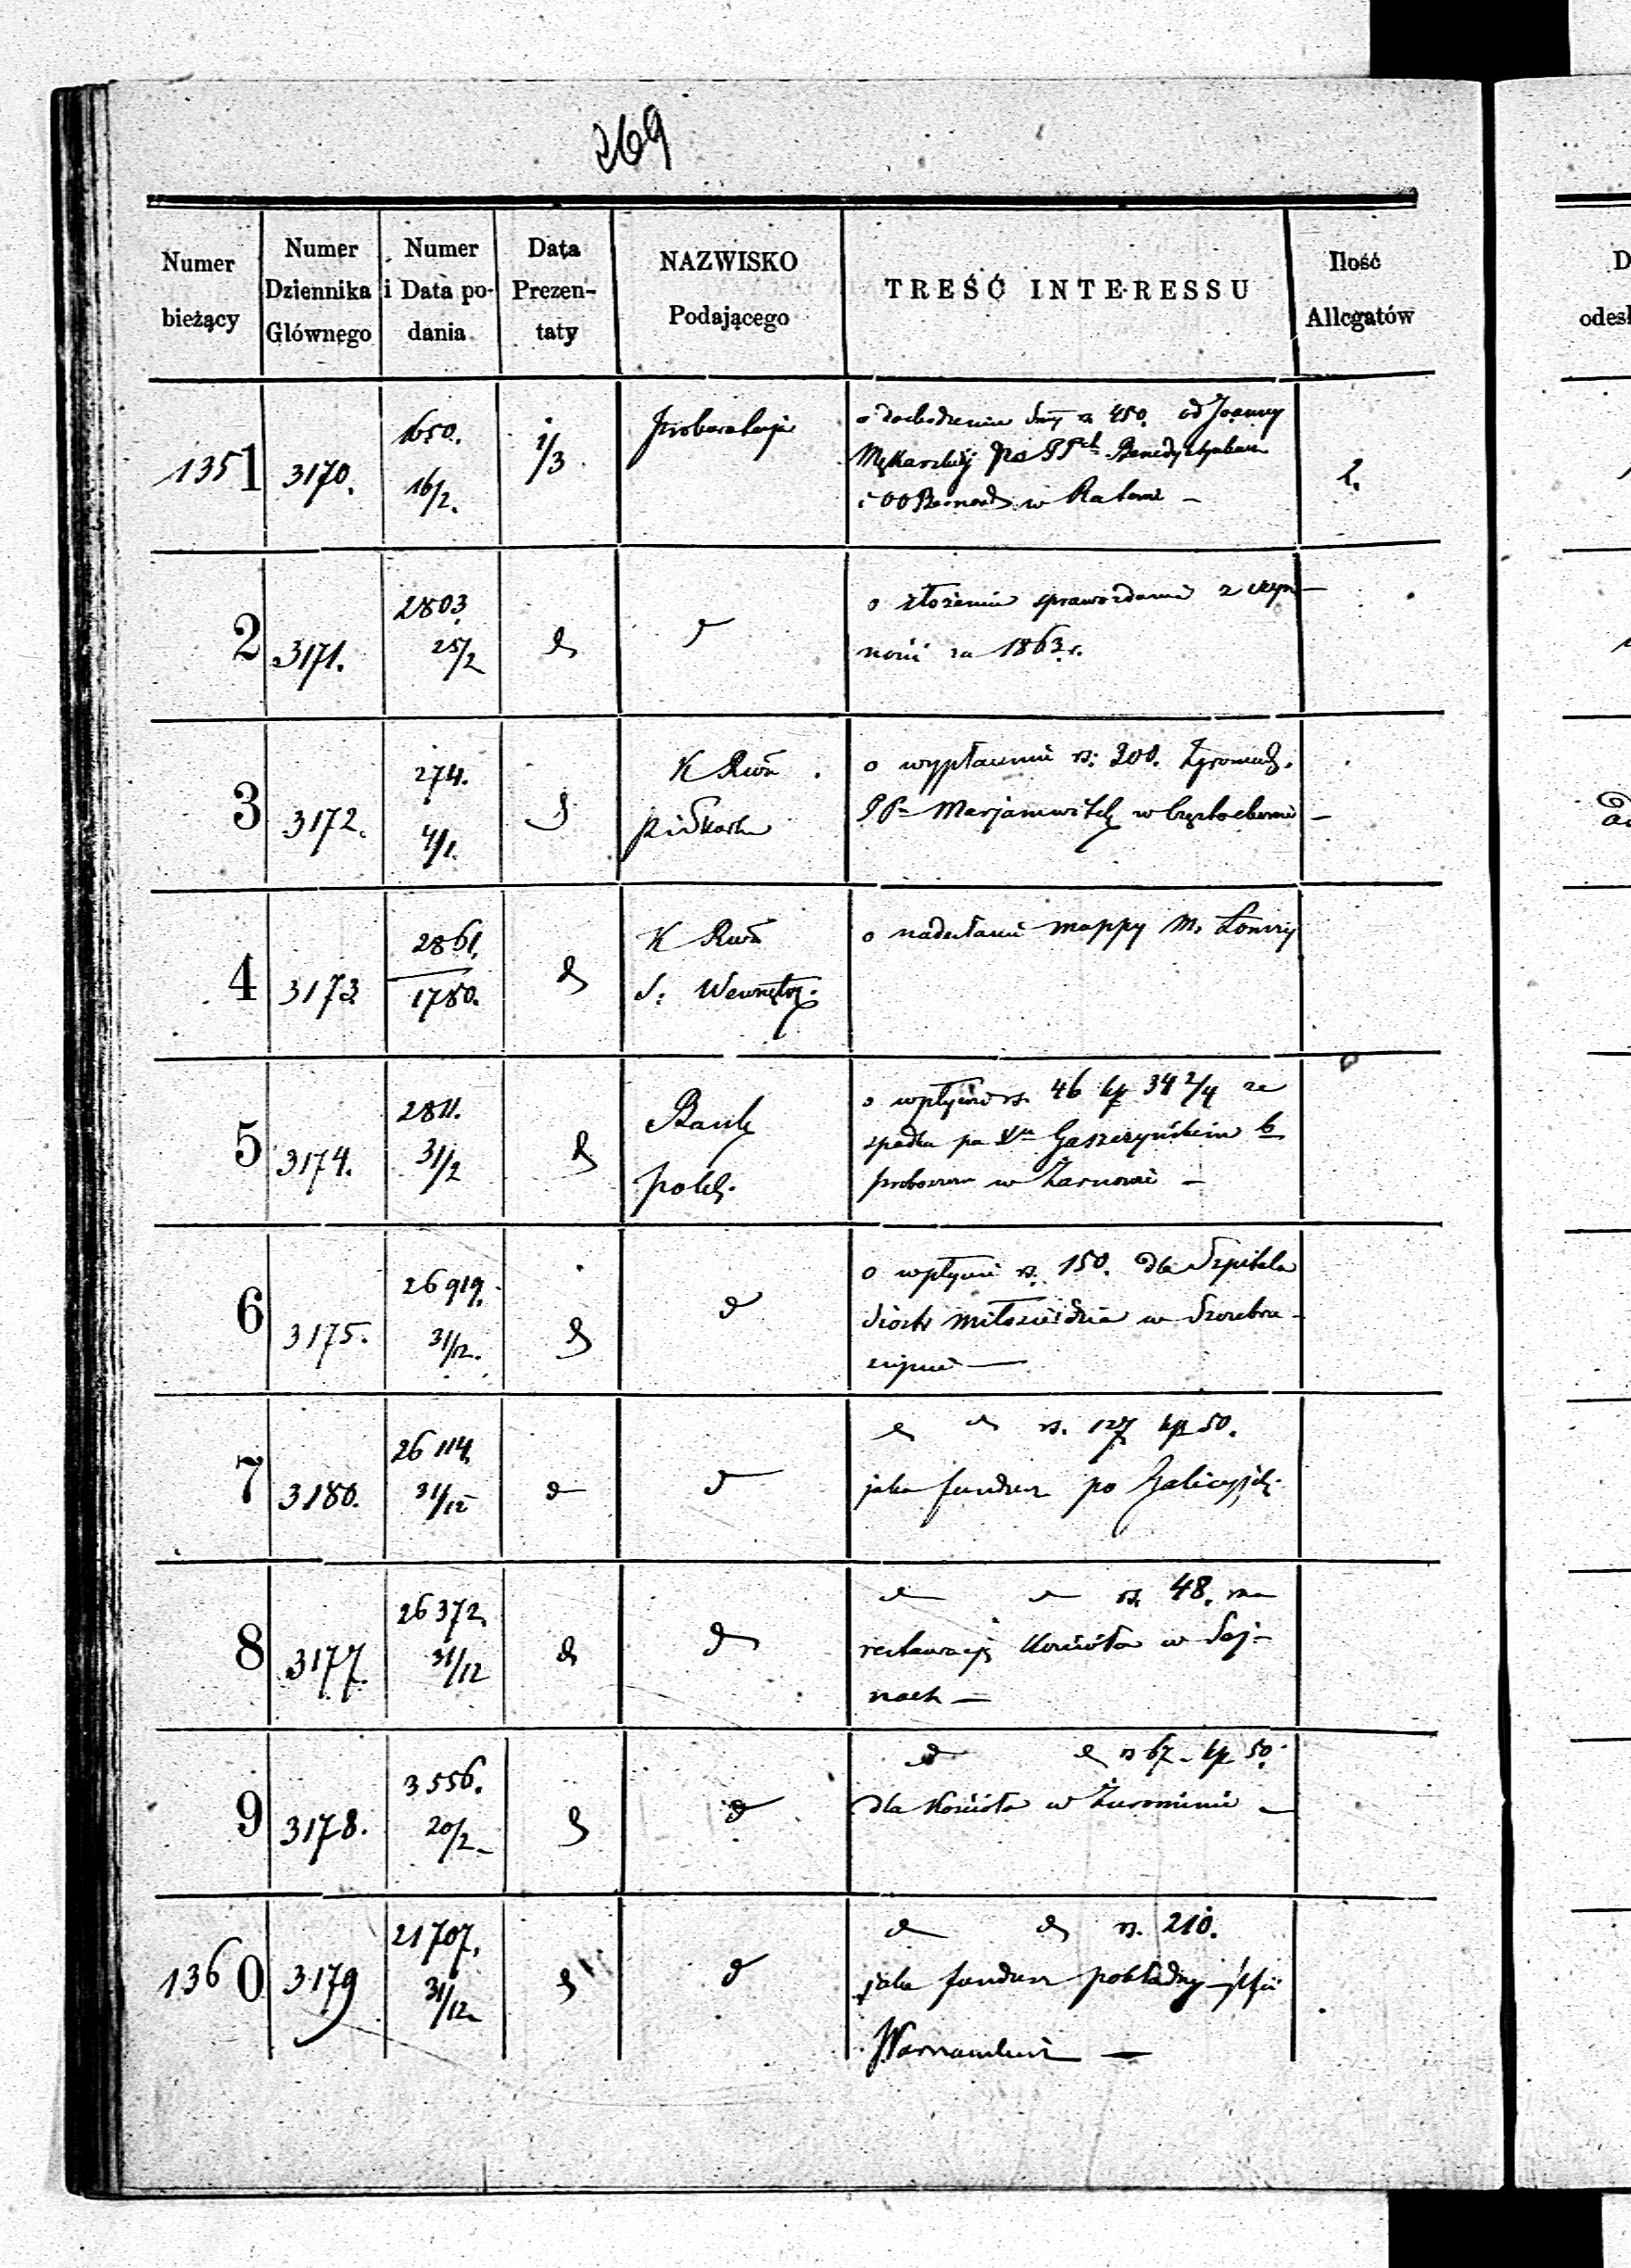 269
Numer bieżący
Numer Dziennika Głównego
Numer i Data podania
Data Prezentaty
NAZWISKO Podającego
TREŚĆ INTERESSU
Ilość Allegatów
1351 3170. 1650. 16/2. 1/3 Prokuratorja
o dochodzeniu rs 450. od Joanny
w
1.
2 3171. 2803. 25/2 d d
o złożenie sprawozdania z czyn-
ności za 1863 r.
3 3172. 274. 4/1. d K Rwa
o wypłacenie rs: 200. Zgromadz.
PP Marjawitek w Częstochowie
4 3173 2861. 1780. d K Rwa
S: Wewnętrz.
o nadesłanie mappy M. Łomży
5 3174. 2811. 31/2 d Bank
polsk.
o wpływie rs. 46 kp 34 2/4 ze
spadku po Xu Gaszczyńskim b.
proboszczu w Żarnowie –
6 3175. 26919. 31/12. d d
o wpływie rs. 150. dla Szpitala
Sióstr miłosierdzia w Szczebrze-
szynie —
7 3180. 26114. 31/12 d d
d d rs. 127 kp 50.
jako fundusz po
8 3177. 26372. 31/12 d d
d d rs. 48. na
restauracją Kościoła w Sej-
nach —
9 3178. 3556. 20/2. d d
d d rs 67 – kp 50.
dla Kościoła w Żurominie –
1360 3179 21707. 31/12. d d
d d rs. 210.
jako fundusz pokładny